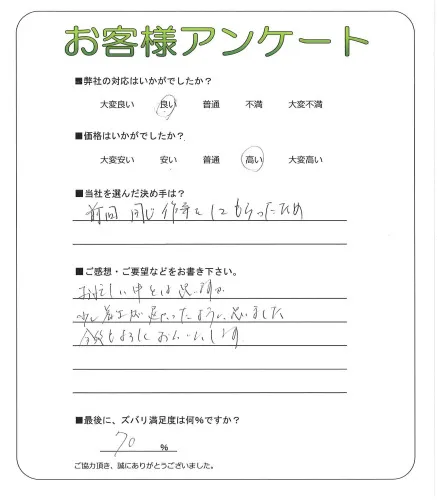 お客様アンケート
■弊社の対応はいかがでしたか？
大変良い 良い 普通 不満 大変不満
■価格はいかがでしたか？
大変安い 安い 普通 高い 大変高い
■当社を選んだ決め手は？
前回 同じ作業をしてもらったため
■ご感想・ご要望などをお書き下さい。
お忙しい中とは思いますが
少し着工が遅かったように思いました
今後もよろしくおねがいします
■最後に、ズバリ満足度は何％ですか？
70 %
ご協力頂き、誠にありがとうございました。